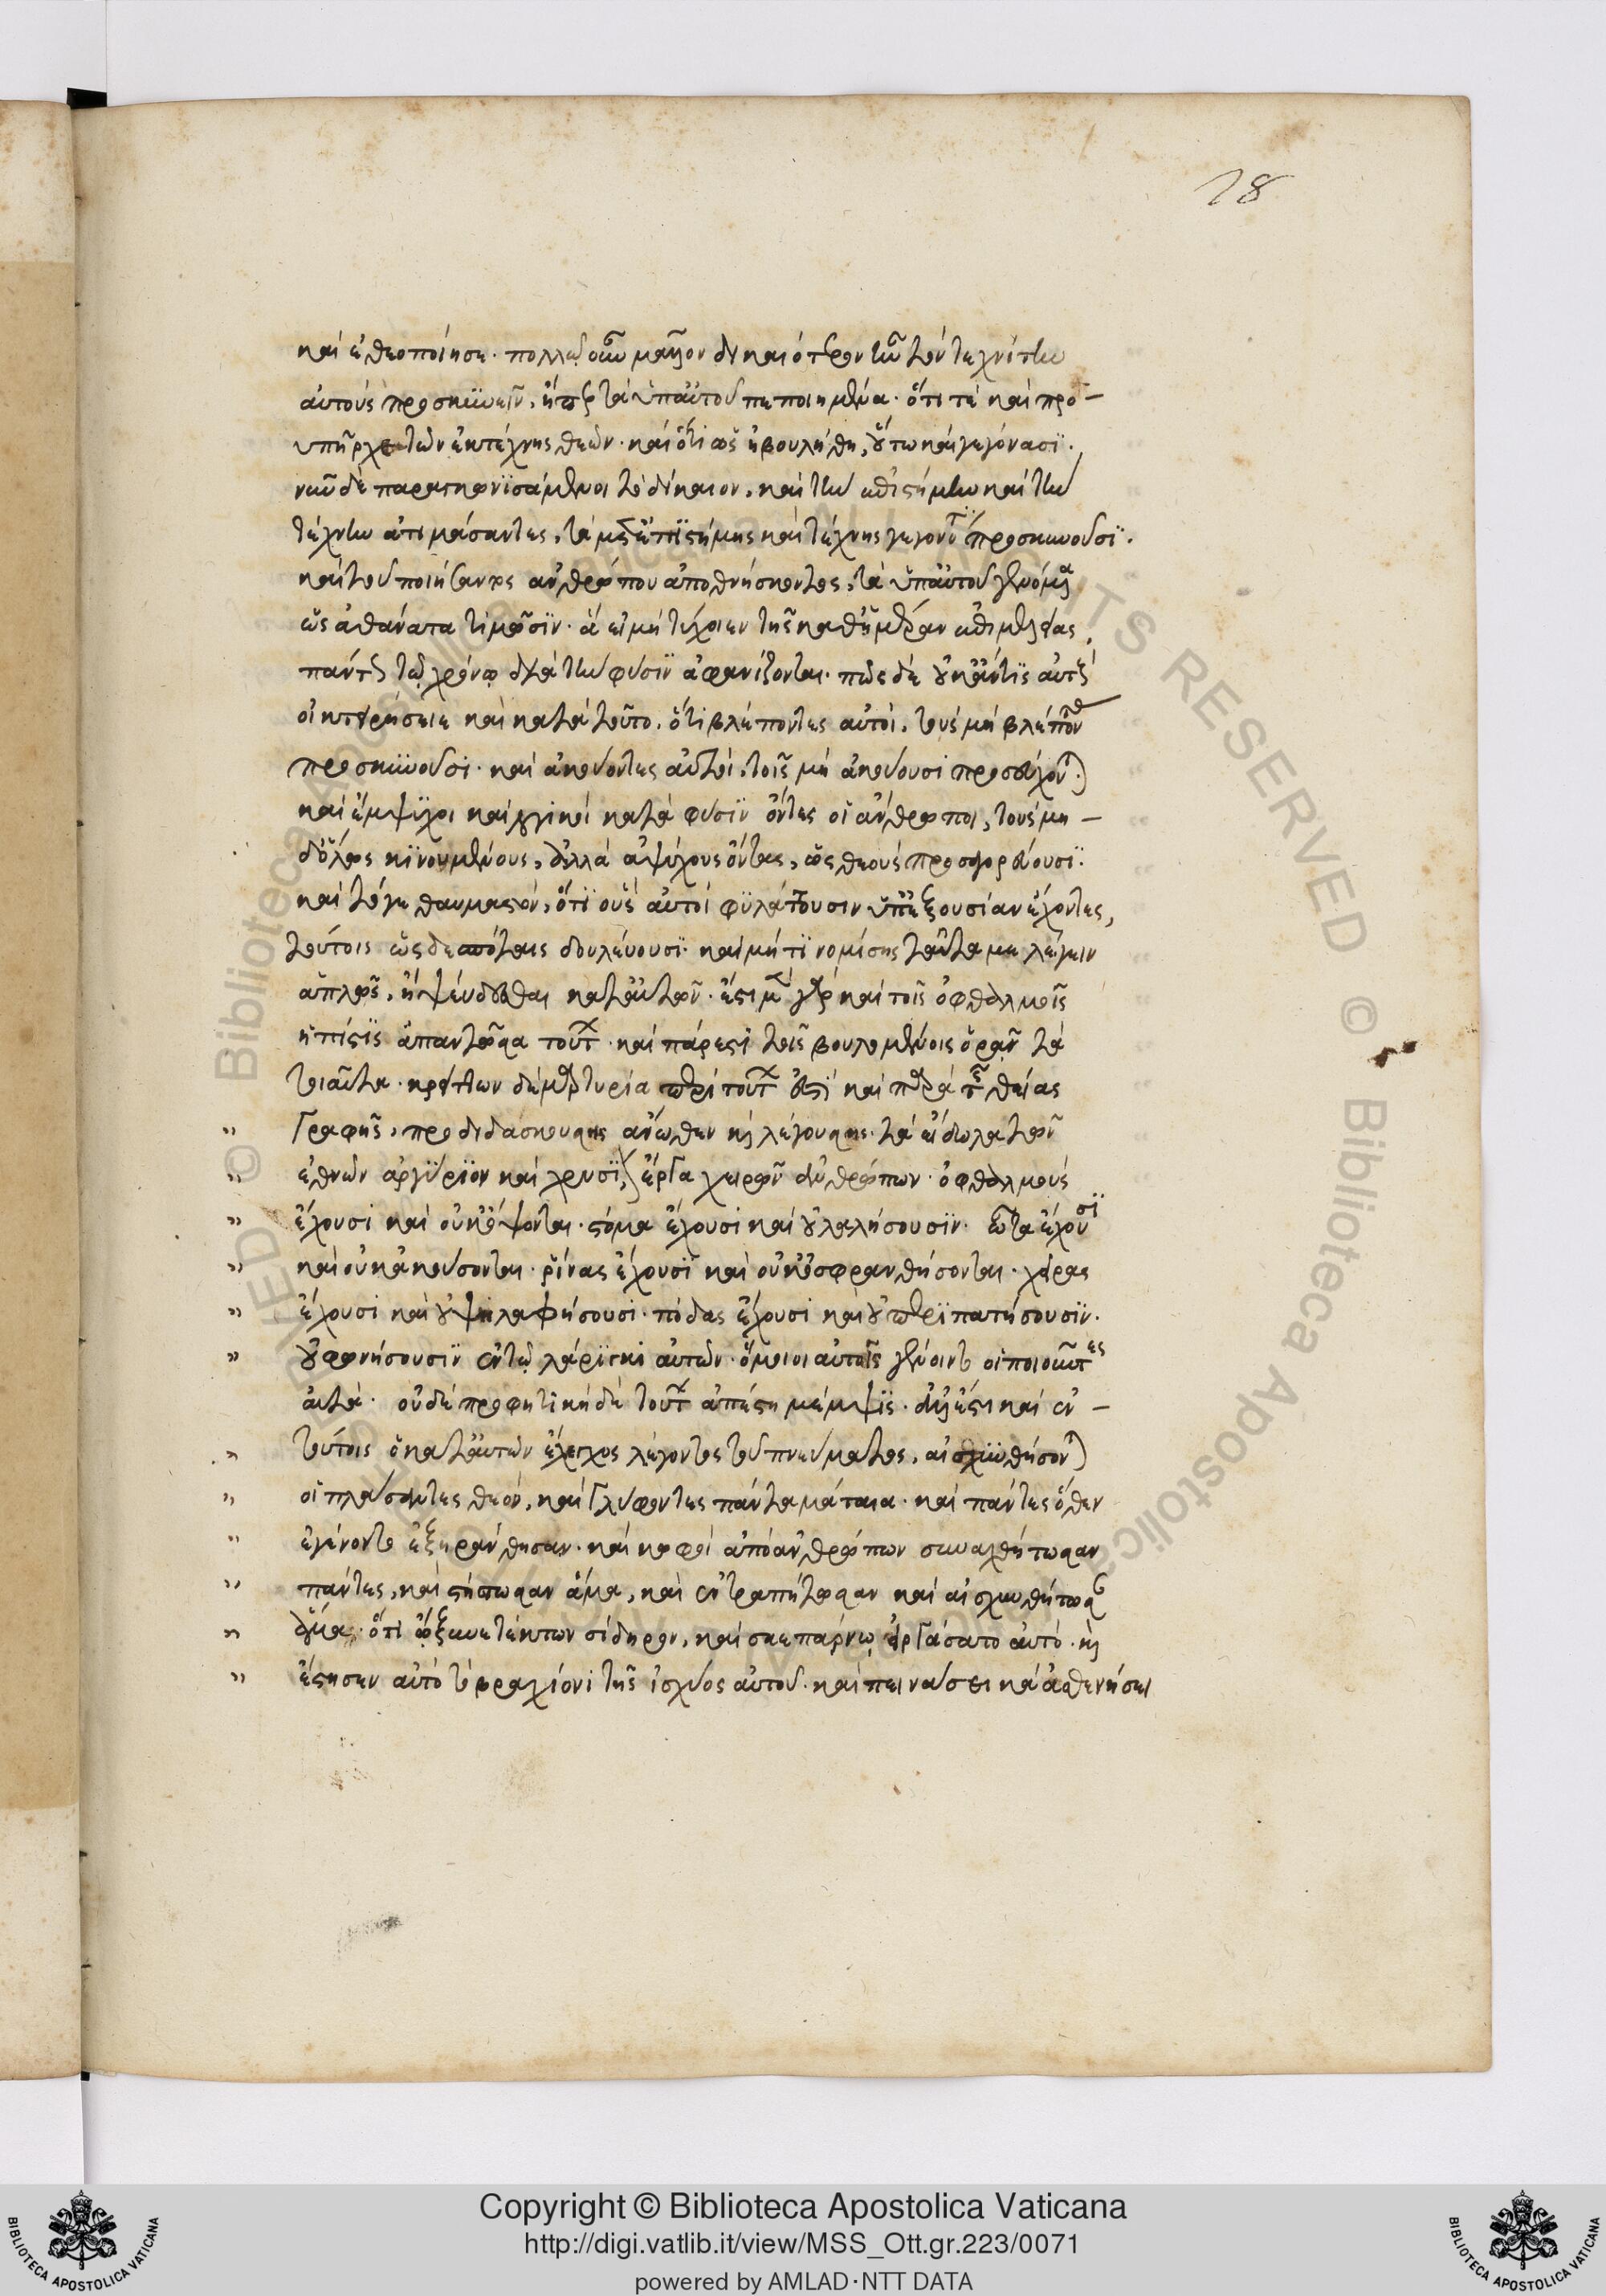 18
καὶ ἐθεοποίησε. πολλῷ οὖν μᾶλλον δικαιότερον ἦν τὸν τεχνίτην
αὐτοὺς προσκυνεῖν, ἤπερ τὰ ὑπ' αὐτοῦ πεποιημένα. ὅτι τὲ καὶ προ-
υπῆρχε τῶν ἐκ τέχνης θεῶν. καὶ ὅτι ὡς ἠβουλήθη, οὕτω καὶ γεγόνασι.
νῦν δὲ παραγκωνισάμενοι τὸ δίκαιον, καὶ τὴν ἐπιστήμην καὶ τὴν
τέχνην ἀτιμάσαντες, τὰ μετ' ἐπιστήμης καὶ τέχνης γεγονότα προσκυνοῦσι.
καὶ τοῦ ποιήσαντος ἀνθρώπου ἀποθνήσκοντος, τὰ ὑπ' αὐτοῦ γενόμενα
ὡς ἀθάνατα τιμῶσιν. ἃ εἰ μὴ τύχοιεν τῆς καθ' ἡμέραν ἐπιμελείας,
πάντως τῷ χρόνῳ διὰ τὴν φύσιν ἀφανίζονται. πῶς δὲ οὐκ ἄν τις αὐτοὺς
οἰκτειρήσειε καὶ κατὰ τοῦτο. ὅτι βλέποντες αὐτοὶ, τοὺς μὴ βλέποντας
προσκυνοῦσι. καὶ ἀκούοντες αὐτοὶ, τοῖς μὴ ἀκούουσι προσεύχονται.
καὶ ἔμψυχοι καὶ λογικοὶ κατὰ φύσιν ὄντες οἱ ἄνθρωποι, τοὺς μη-
δόλως κινουμένους, ἀλλὰ ἀψύχους ὄντας, ὡς θεοὺς προσαγορεύουσι.
καὶ τό γε θαυμαστὸν, ὅτι οὓς αὐτοὶ φυλάττουσιν ὑπ' ἐξουσίαν ἔχοντες,
τούτοις ὡς δεσπόταις δουλεύουσι. καὶ μή τι νομίσῃς ταῦτα με λέγειν
ἁπλῶς, ἢ ψεύδεσθαι κατ' αὐτῶν. ἔστι μὲν γὰρ καὶ τοῖς ὀφθαλμοῖς
ἡ πίστις ἀπαντῶσα τούτων. καὶ πάρεστι τοῖς βουλομένοις ὁρᾶν τὰ
τοιαῦτα. κρείττων δὲ μαρτυρία περὶ τούτων ἐστὶ καὶ παρὰ τῆς θείας
γραφῆς, προδιδασκούσης ἄνωθεν καὶ λεγούσης. τὰ εἴδωλα τῶν
ἐθνῶν ἀργύριον καὶ χρυσίον, ἔργα χειρῶν ἀνθρώπων. ὀφθαλμοὺς
ἔχουσι καὶ οὐκ ὄψονται. στόμα ἔχουσι καὶ οὐ λαλήσουσιν. ὦτα ἔχουσι
καὶ οὐκ ἀκούσονται. ῥῖνας ἔχουσι καὶ οὐκ ὀσφρανθήσονται. χεῖρας
ἔχουσι καὶ οὐ ψηλαφήσουσι. πόδας ἔχουσι καὶ οὐ περιπατήσουσιν.
οὐ φωνήσουσιν ἐν τῷ λάρυγγι αὐτῶν. ὅμοιοι αὐτοῖς γένοιντο οἱ ποιοῦντες
αὐτά. οὐδὲ προφητικὴ δὲ τούτων ἀπέστη μέμψις. ἀλλ' ἔστι καὶ ἐν-
τούτοις ὁ κατ' αὐτῶν ἔλεγχος λέγοντος τοῦ πνεύματος, αἰσχυνθήσονται
οἱ πλάσαντες θεὸν, καὶ γλύφοντες πάντα μάταια. καὶ πάντες ὅθεν
ἐγένοντο ἐξηράνθησαν. καὶ κωφοὶ ἀπὸ ἀνθρώπων συναχθήτωσαν
πάντες, καὶ στήτωσαν ἅμα, καὶ ἐντραπήτωσαν καὶ αἰσχυνθήτωσαν
ἅμα. ὅτι ὤξυνε τέκτων σίδηρον, καὶ σκεπάρνῳ εἰργάσατο αὐτό. καὶ
ἔστησεν αὐτὸ τῷ βραχίονι τῆς ἰσχύος αὐτοῦ. καὶ πεινάσει καὶ ἀσθενήσει
Copyright © Biblioteca Apostolica Vaticana
http://digi.vatlib.it/view/MSS_Ott.gr.223/0071
powered by AMLAD·NTT DATA